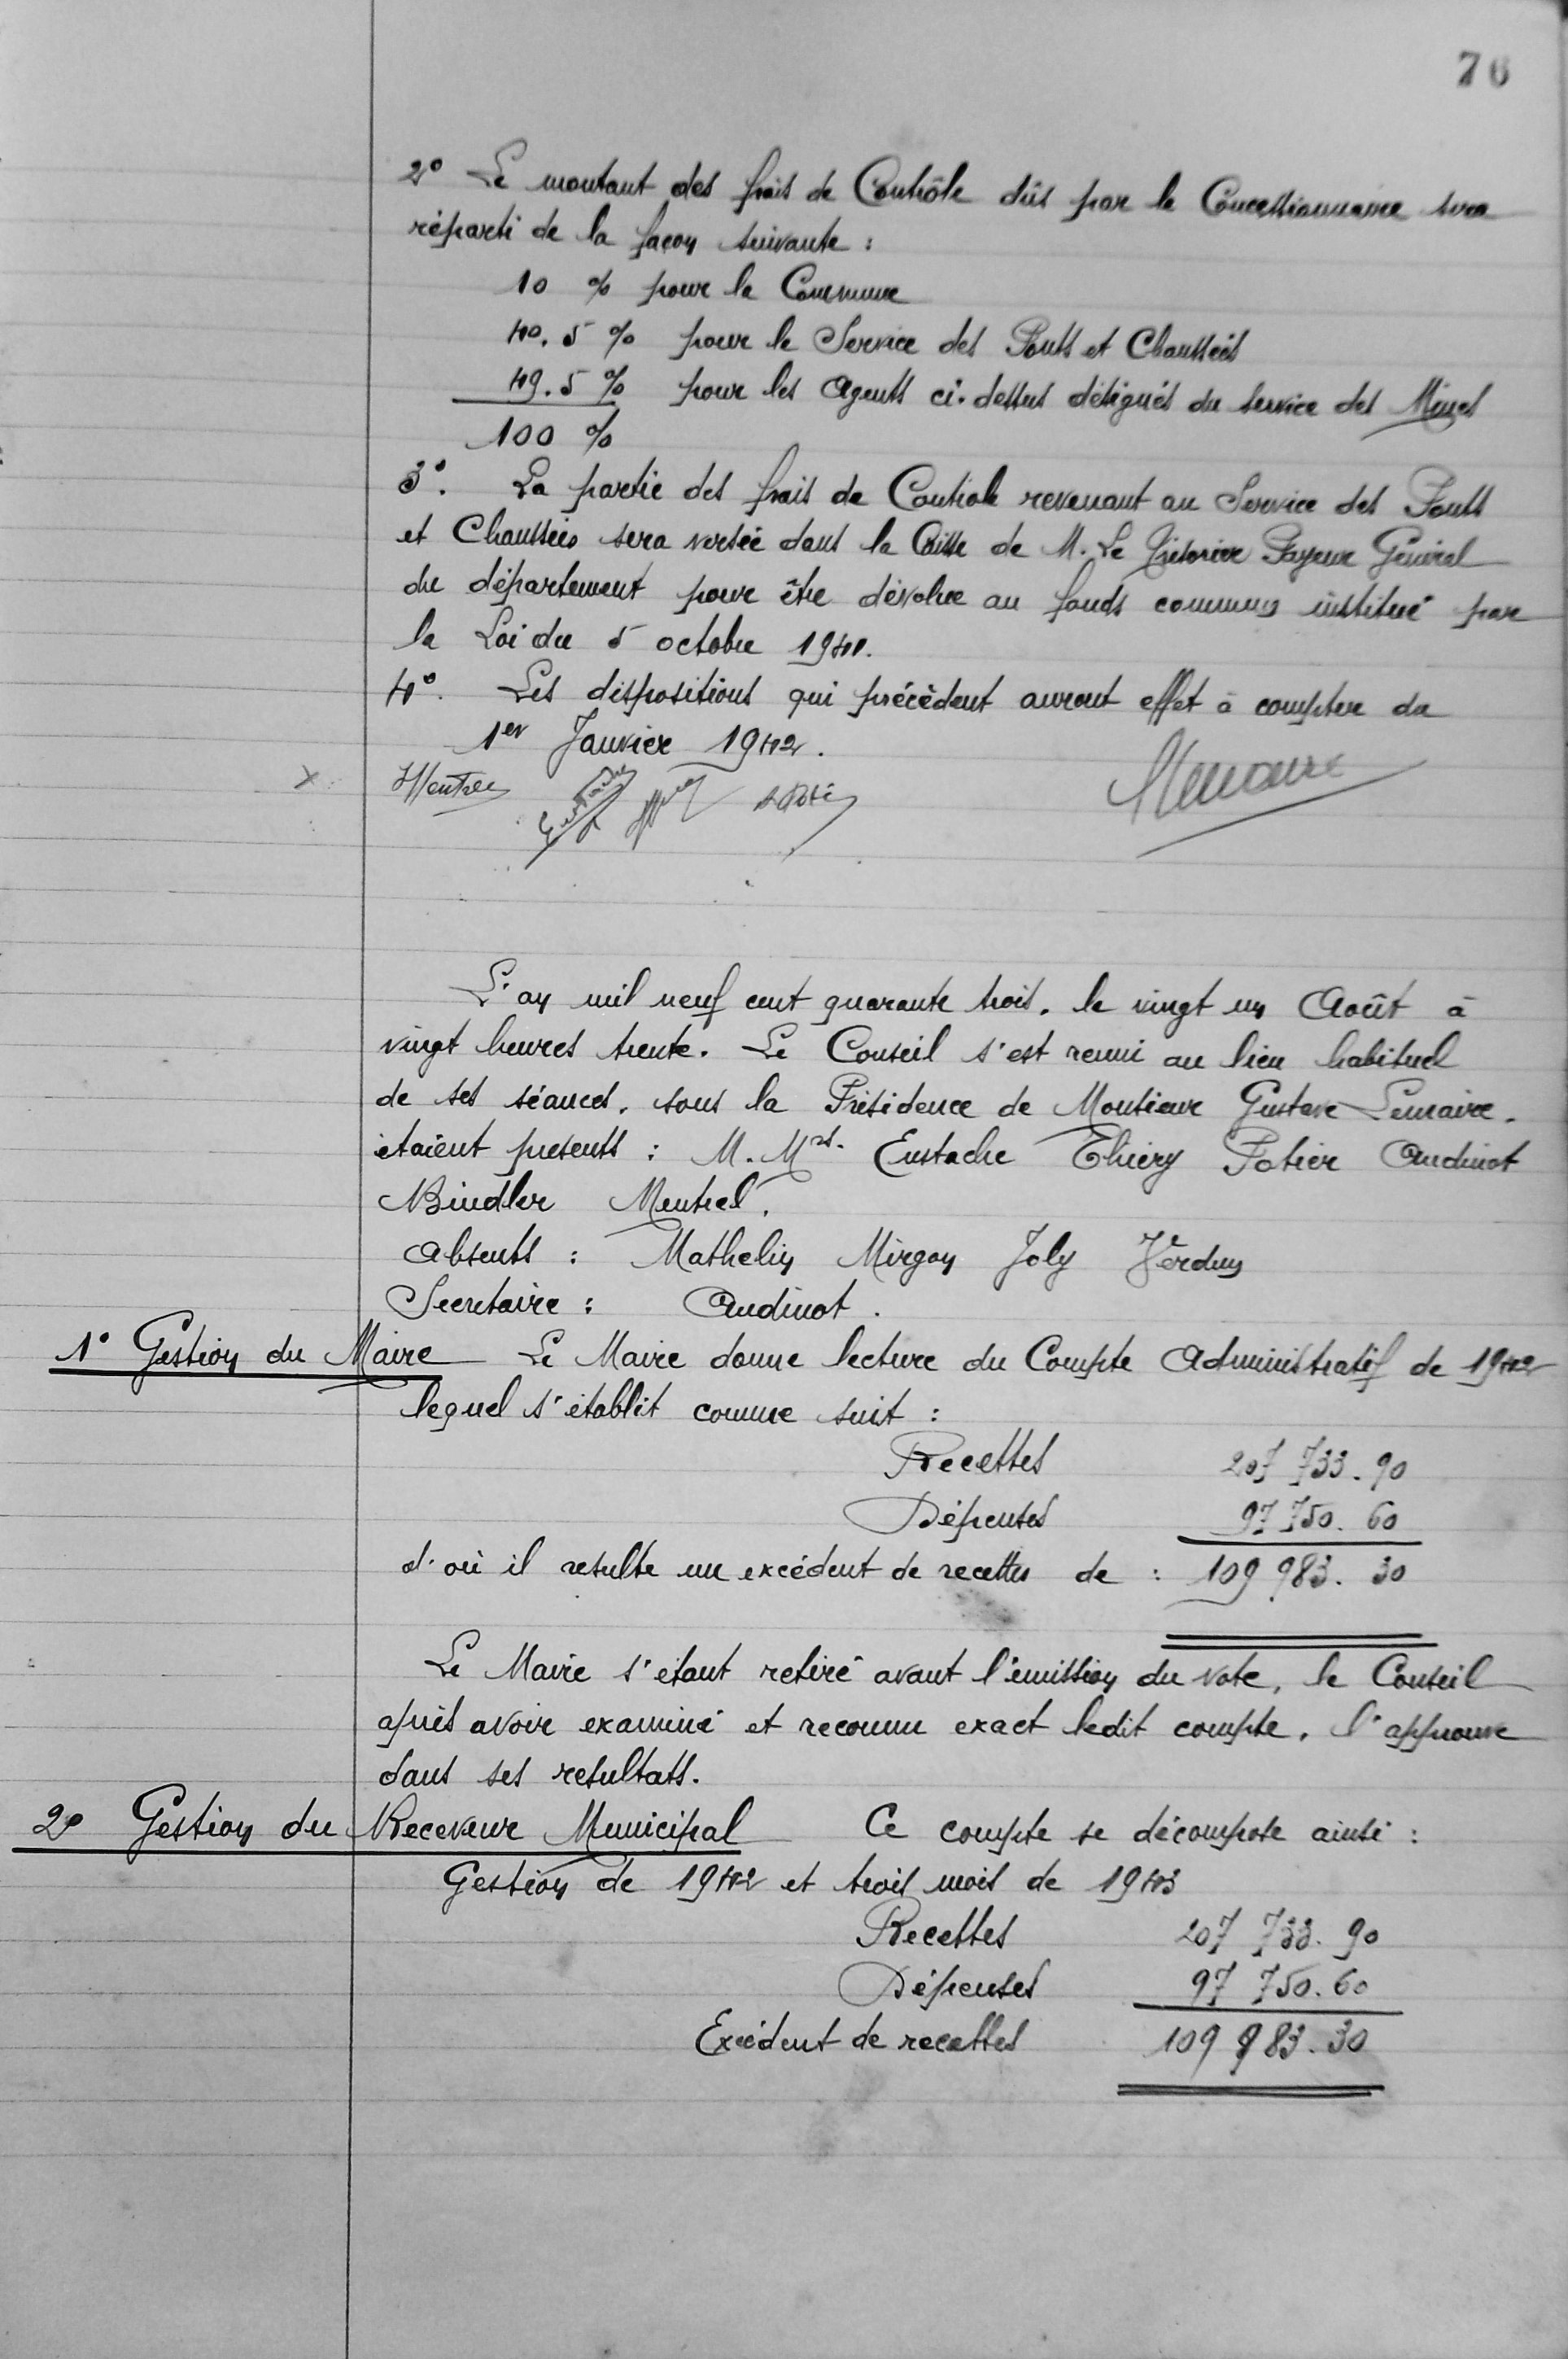 76
2° Le montant des frais de Contrôle dûs par le Concessionnaire sera
réparti de la façon suivante :
10 % pour la Commune
40.5 % pour le Service des Ponts et Chaussées
49.5 % pour les Agents ci-dessus désignés du service des Mines
100 %
3°. La partie des frais de Controle revenant au Service des Ponts
et Chaussées sera versée dans la Caisse de M. Le Trésorier Payeur Général
du département pour être dévolue au fonds commun institué par
la Loi du 5 octobre 1941.
4°. Les dispositions qui précèdent auront effet à compter du
1er Janvier 1942.
x
L'an mil neuf cent quarante trois. le vingt un Août à
vingt heures trente. Le Conseil s'est reuni au lieu habituel
de ses séances, sous la Présidence de Monsieur Gustave Lemaire.
étaient presents : M. Mrs. Eustache Thiery Potier Audinot
Bindler Mentrel.
Absents : Mathelin Mirgon Joly Verdun
Secretaire : Audinot.
1° Gestion du Maire Le Maire donne lecture du Compte Administratif de 1942
lequel s'établit comme suit :
Recettes 207 733.90
Dépenses 97 750.60
d'où il resulte un excédent de recettes de : 109 983.30
Le Maire s'étant retiré avant l'émission du vote, le Conseil
après avoir examiné et reconnu exact ledit compte, l'approuve
dans ses resultats.
2° Gestion du Receveur Municipal Ce compte se décompose ainsi :
Gestion de 1942 et trois mois de 1943
Recettes 207 733.90
Dépenses 97 750.60
Excédent de recettes 109 983.30